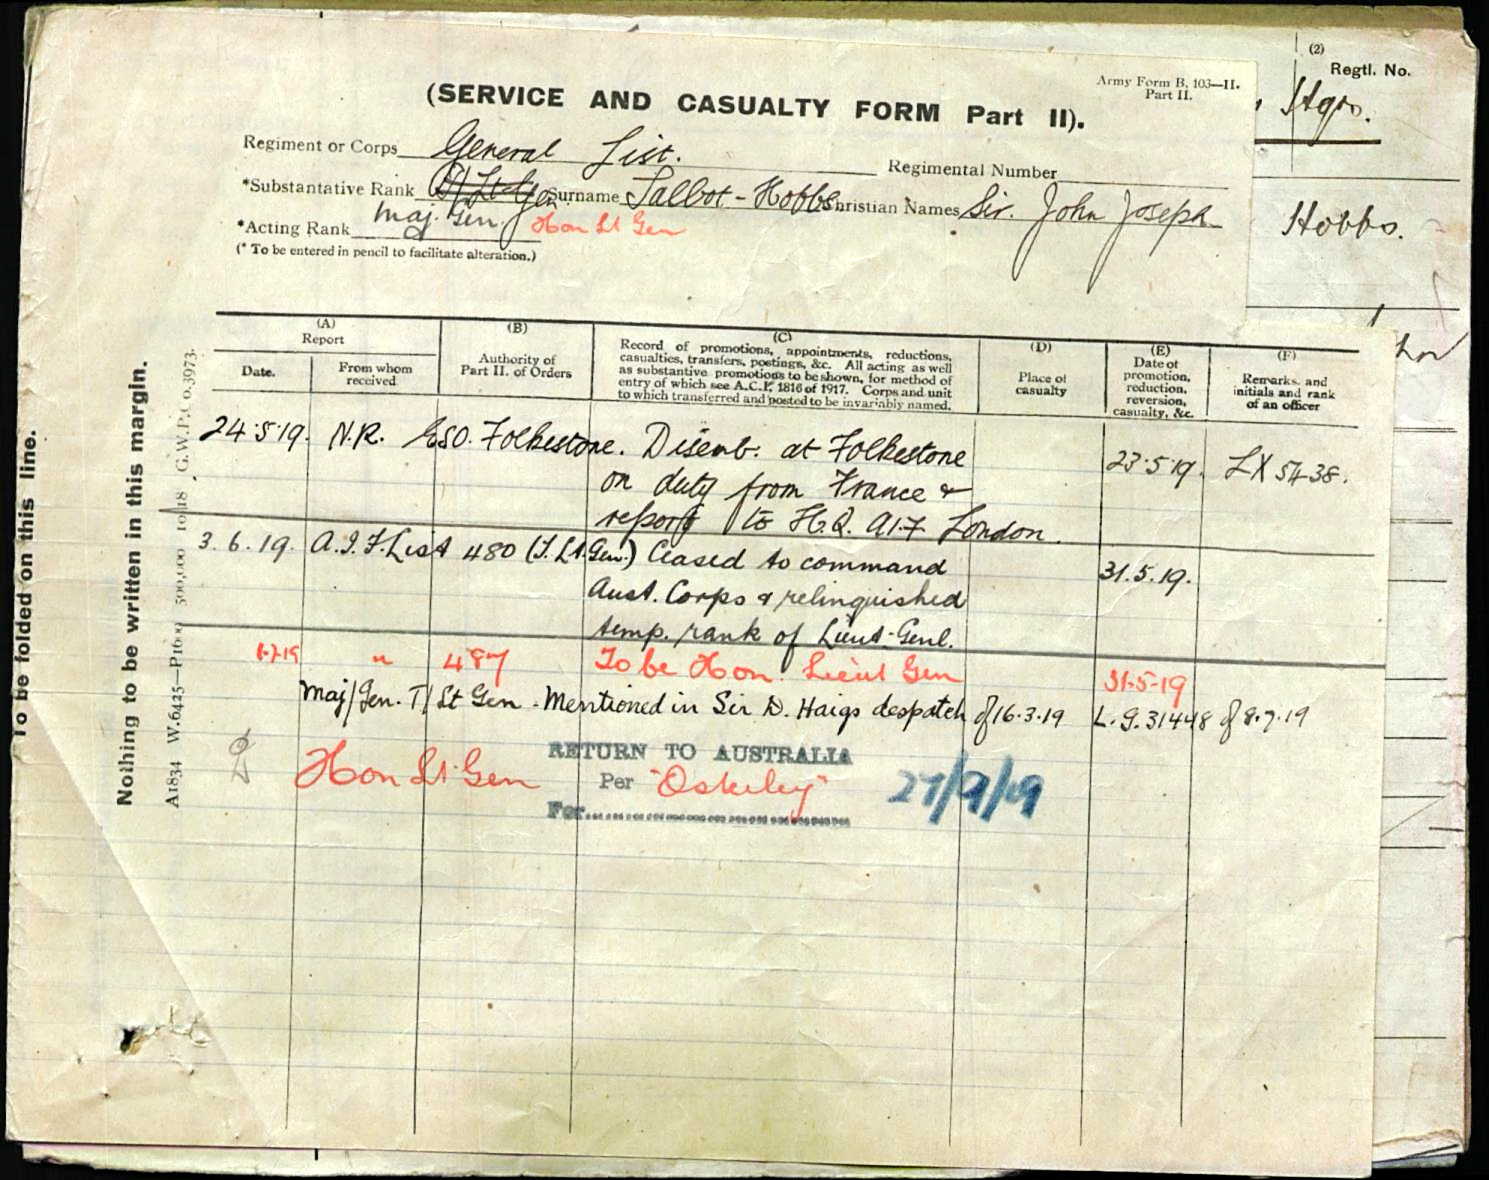 (2)
Regtl. No.
Army Form B. 103—II.
Part II.
Hqrs.
(SERVICE AND CASUALTY FORM Part II).
Regiment or Corps General List.
Regimental Number
*Substantative Rank Surname Talbot - Hobbs. Christian Names Sir. John Joseph
Hobbs.
*Acting Rank Maj. Gen Hon Lt Gen
(* To be entered in pencil to facilitate alteration.)
(A)
Report
(B)
Authority of
Part II. of Orders
(C)
Record of promotions, appointments, reductions,
casualties, transfers, postings, &c. All acting as well
as substantive promotions to be shown, for method of
entry of which see A.C.I. 1816 of 1917. Corps and unit
to which transferred and posted to be invariably named.
(D)
Place of
casualty
(E)
Date of
promotion,
reduction,
reversion,
casualty, &c.
(F)
Remarks, and
initials and rank
of an officer
Date.
From whom
received
24.5.19. N.R. ESO. Folkestone. Disemb. at Folkestone 23.5.19. LX 5438.
on duty from France &
report to H.Q. AIF London.
3.6.19. A.I.F. List 480 (T. Lt. Gen.) Ceased to command 31.5.19.
Aust. Corps & relinquished
temp. rank of Lieut-Genl.
1-7-19 " 487 To be Hon. Lieut Gen 31-5-19
Maj/Gen. T/Lt Gen. Mentioned in Sir D. Haigs despatch of 16.3.19 L.G. 31448 of 8.7.19
Hon Lt. Gen
RETURN TO AUSTRALIA
Per "Osterley"
For
27/9/19
To be folded on this line.
Nothing to be written in this margin.
A1834 W.6425—P1600 500,000 10/18